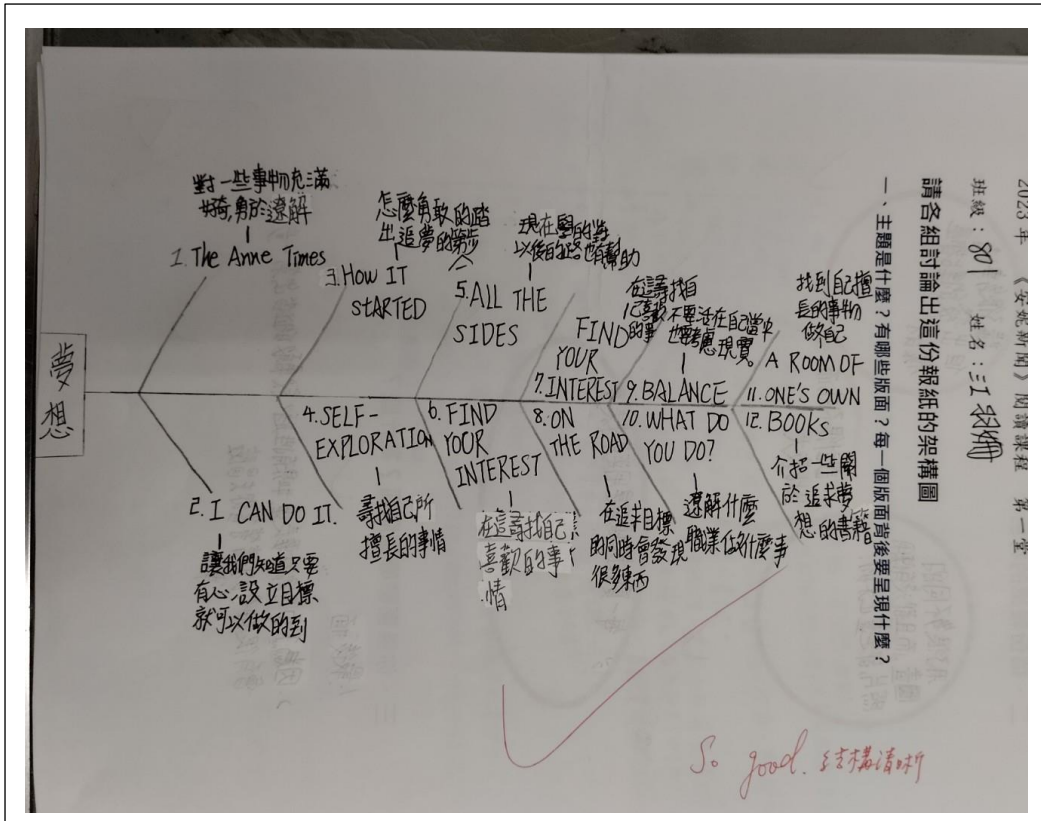 2023年 《安妮新聞》閱讀課程 第一堂
班級：801 姓名：江
請各組討論出這份報紙的架構圖
一、主題是什麼？有哪些版面？每一個版面背後要呈現什麼？
夢想
對一些事物充滿
好奇,勇於遼解
1. The Anne Times
怎麼勇敢的踏
出追夢的第一步
3. HOW IT
STARTED
現在學的對
以後的路也有幫助
5. ALL THE
SIDES
在這尋找自
己喜歡
的事
FIND
YOUR
7. INTEREST
不要活在自己當中
也要考慮現實。
9. BALANCE
找到自己擅
長的事物
做自己
A ROOM OF
11. ONE'S OWN
2. I CAN DO IT.
讓我們知道只要
有心,設立目標
就可以做的到
4. SELF-
EXPLORATION
尋找自己所
擅長的事情
6. FIND
YOUR
INTEREST
在這尋找自己
喜歡的事
情
8. ON
THE ROAD
在追求目標
的同時會發現
很多東西
10. WHAT DO
YOU DO?
遼解什麼
職業做什麼事
12. BOOKS
介紹一些關
於追求夢
想的書籍
So good. 結構清晰